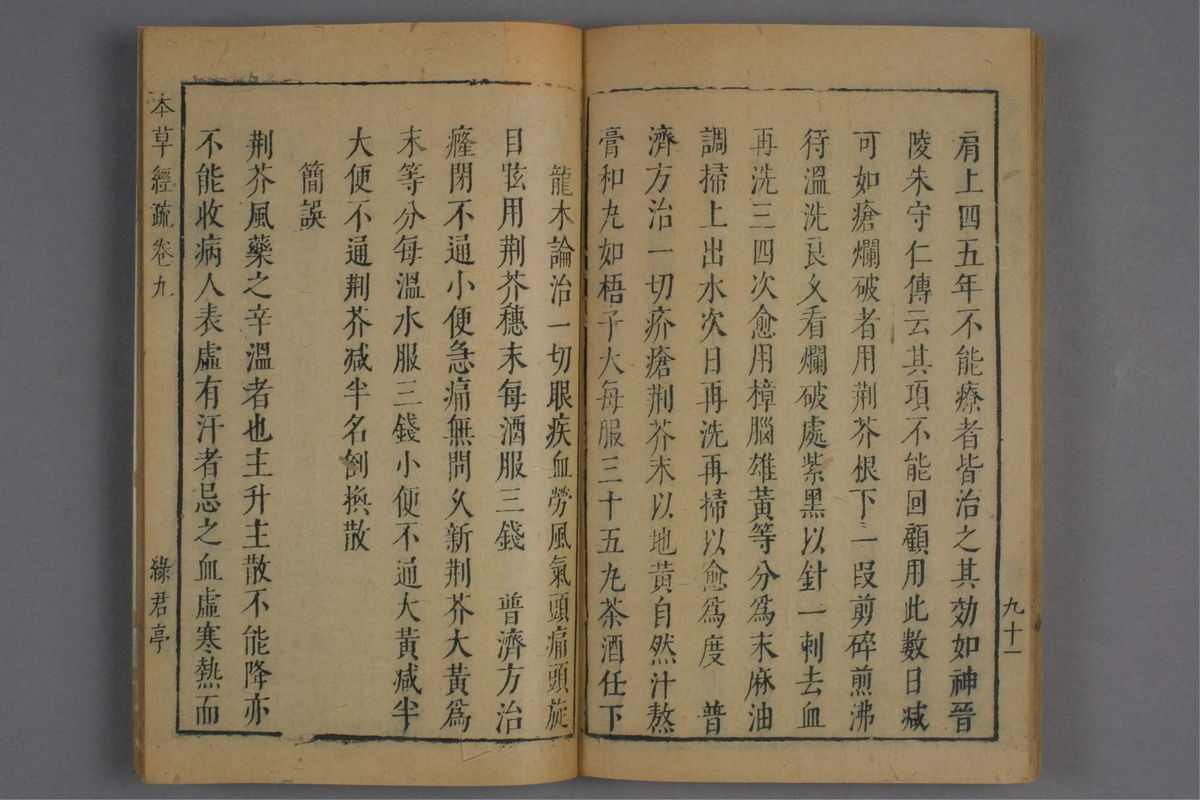 肩上四五年不能療者皆治之其効如神晉
陵朱守仁傳云其項不能回顧用此數日减
可如瘡爛破者用荆芥根下一叚剪碎煎沸
待溫洗良乆看爛破處紫黑以針一刺去血
再洗三四次愈用樟腦雄黃等分爲末麻油
調掃上出水次日再洗再掃以愈爲度　普
濟方治一切疥瘡荆芥末以地黃自然汁熬
膏和丸如梧子大每服三十五丸茶酒任下
九十一
龍木論治一切眼疾血勞風氣頭痛頭旋
目眩用荆芥穗末每酒服三錢　普濟方治
癃閉不通小便急痛無問乆新荆芥大黃爲
末等分每溫水服三錢小便不通大黃减半
大便不通荆芥减半名倒換散
簡誤
荆芥風藥之辛溫者也主升主散不能降亦
不能收病人表虛有汗者忌之血虛寒熱而
本草經疏卷九
綠君亭